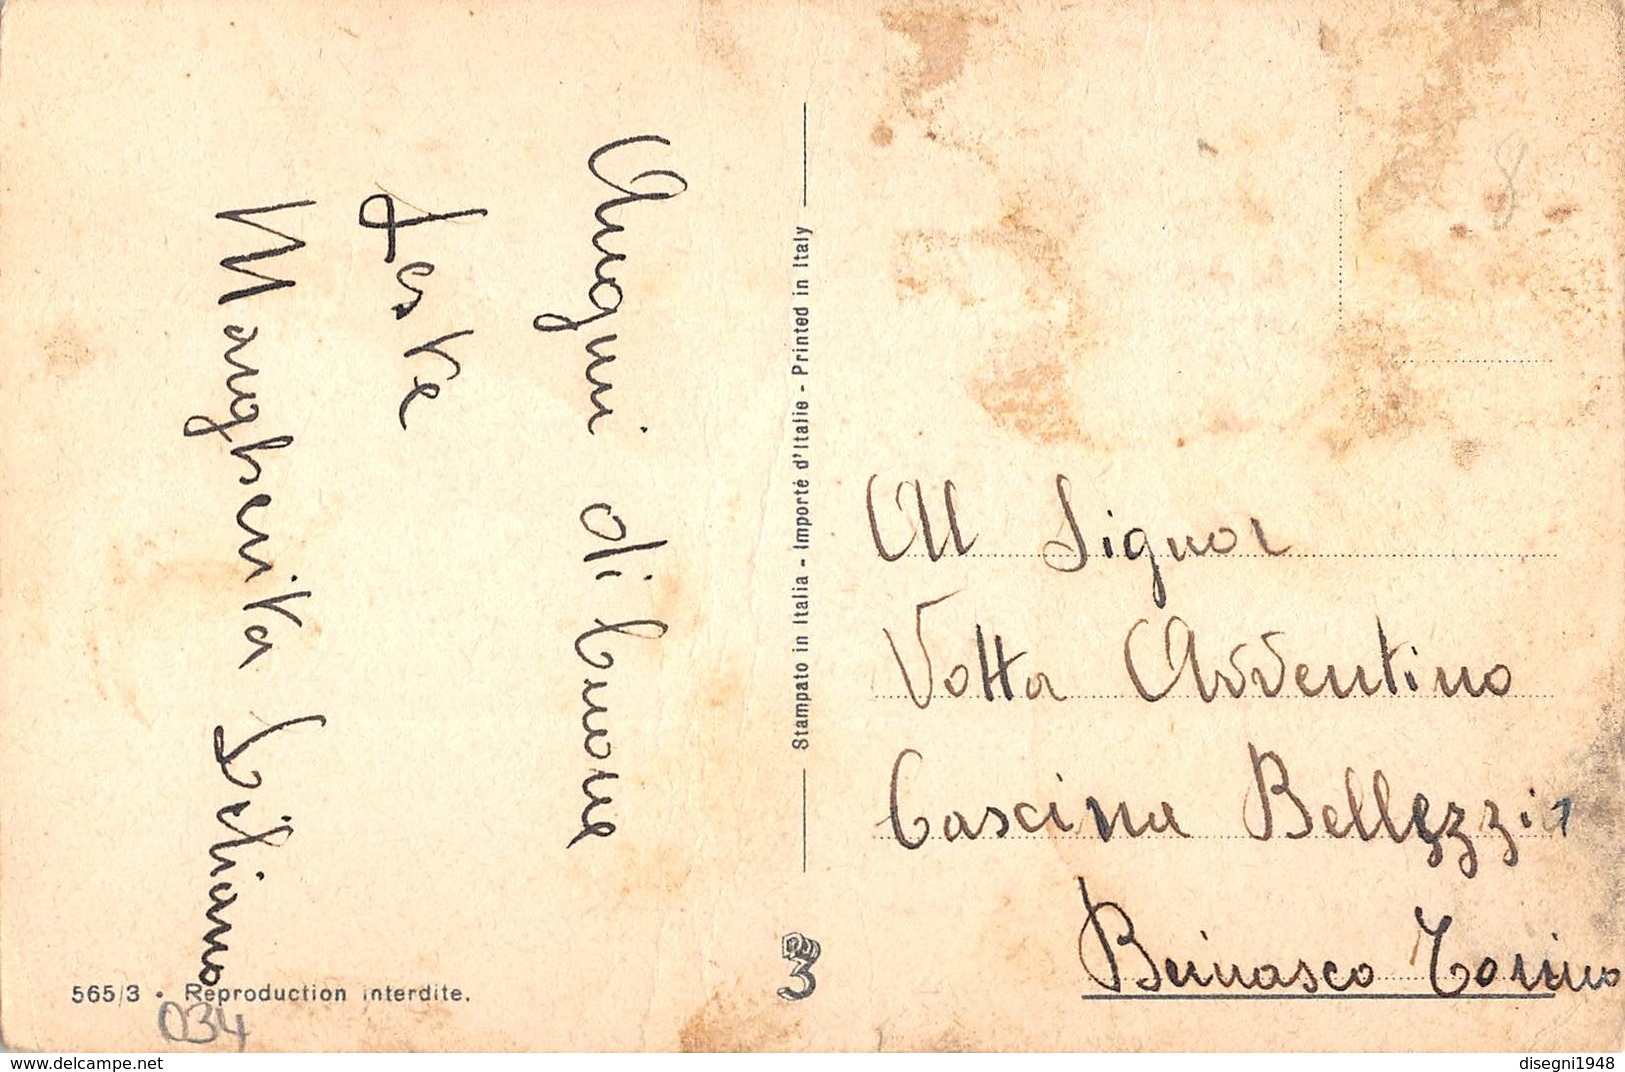 Auguri di buone
feste
Margherita
Stampato in Italia - Importé d'Italie - Printed in Italy
3
8
Al Signor
Votta Avventino
Cascina Bellezzia
Beinasco Torino
565/3 • Reproduction interdite.
034
delcampe.net
disegni1948